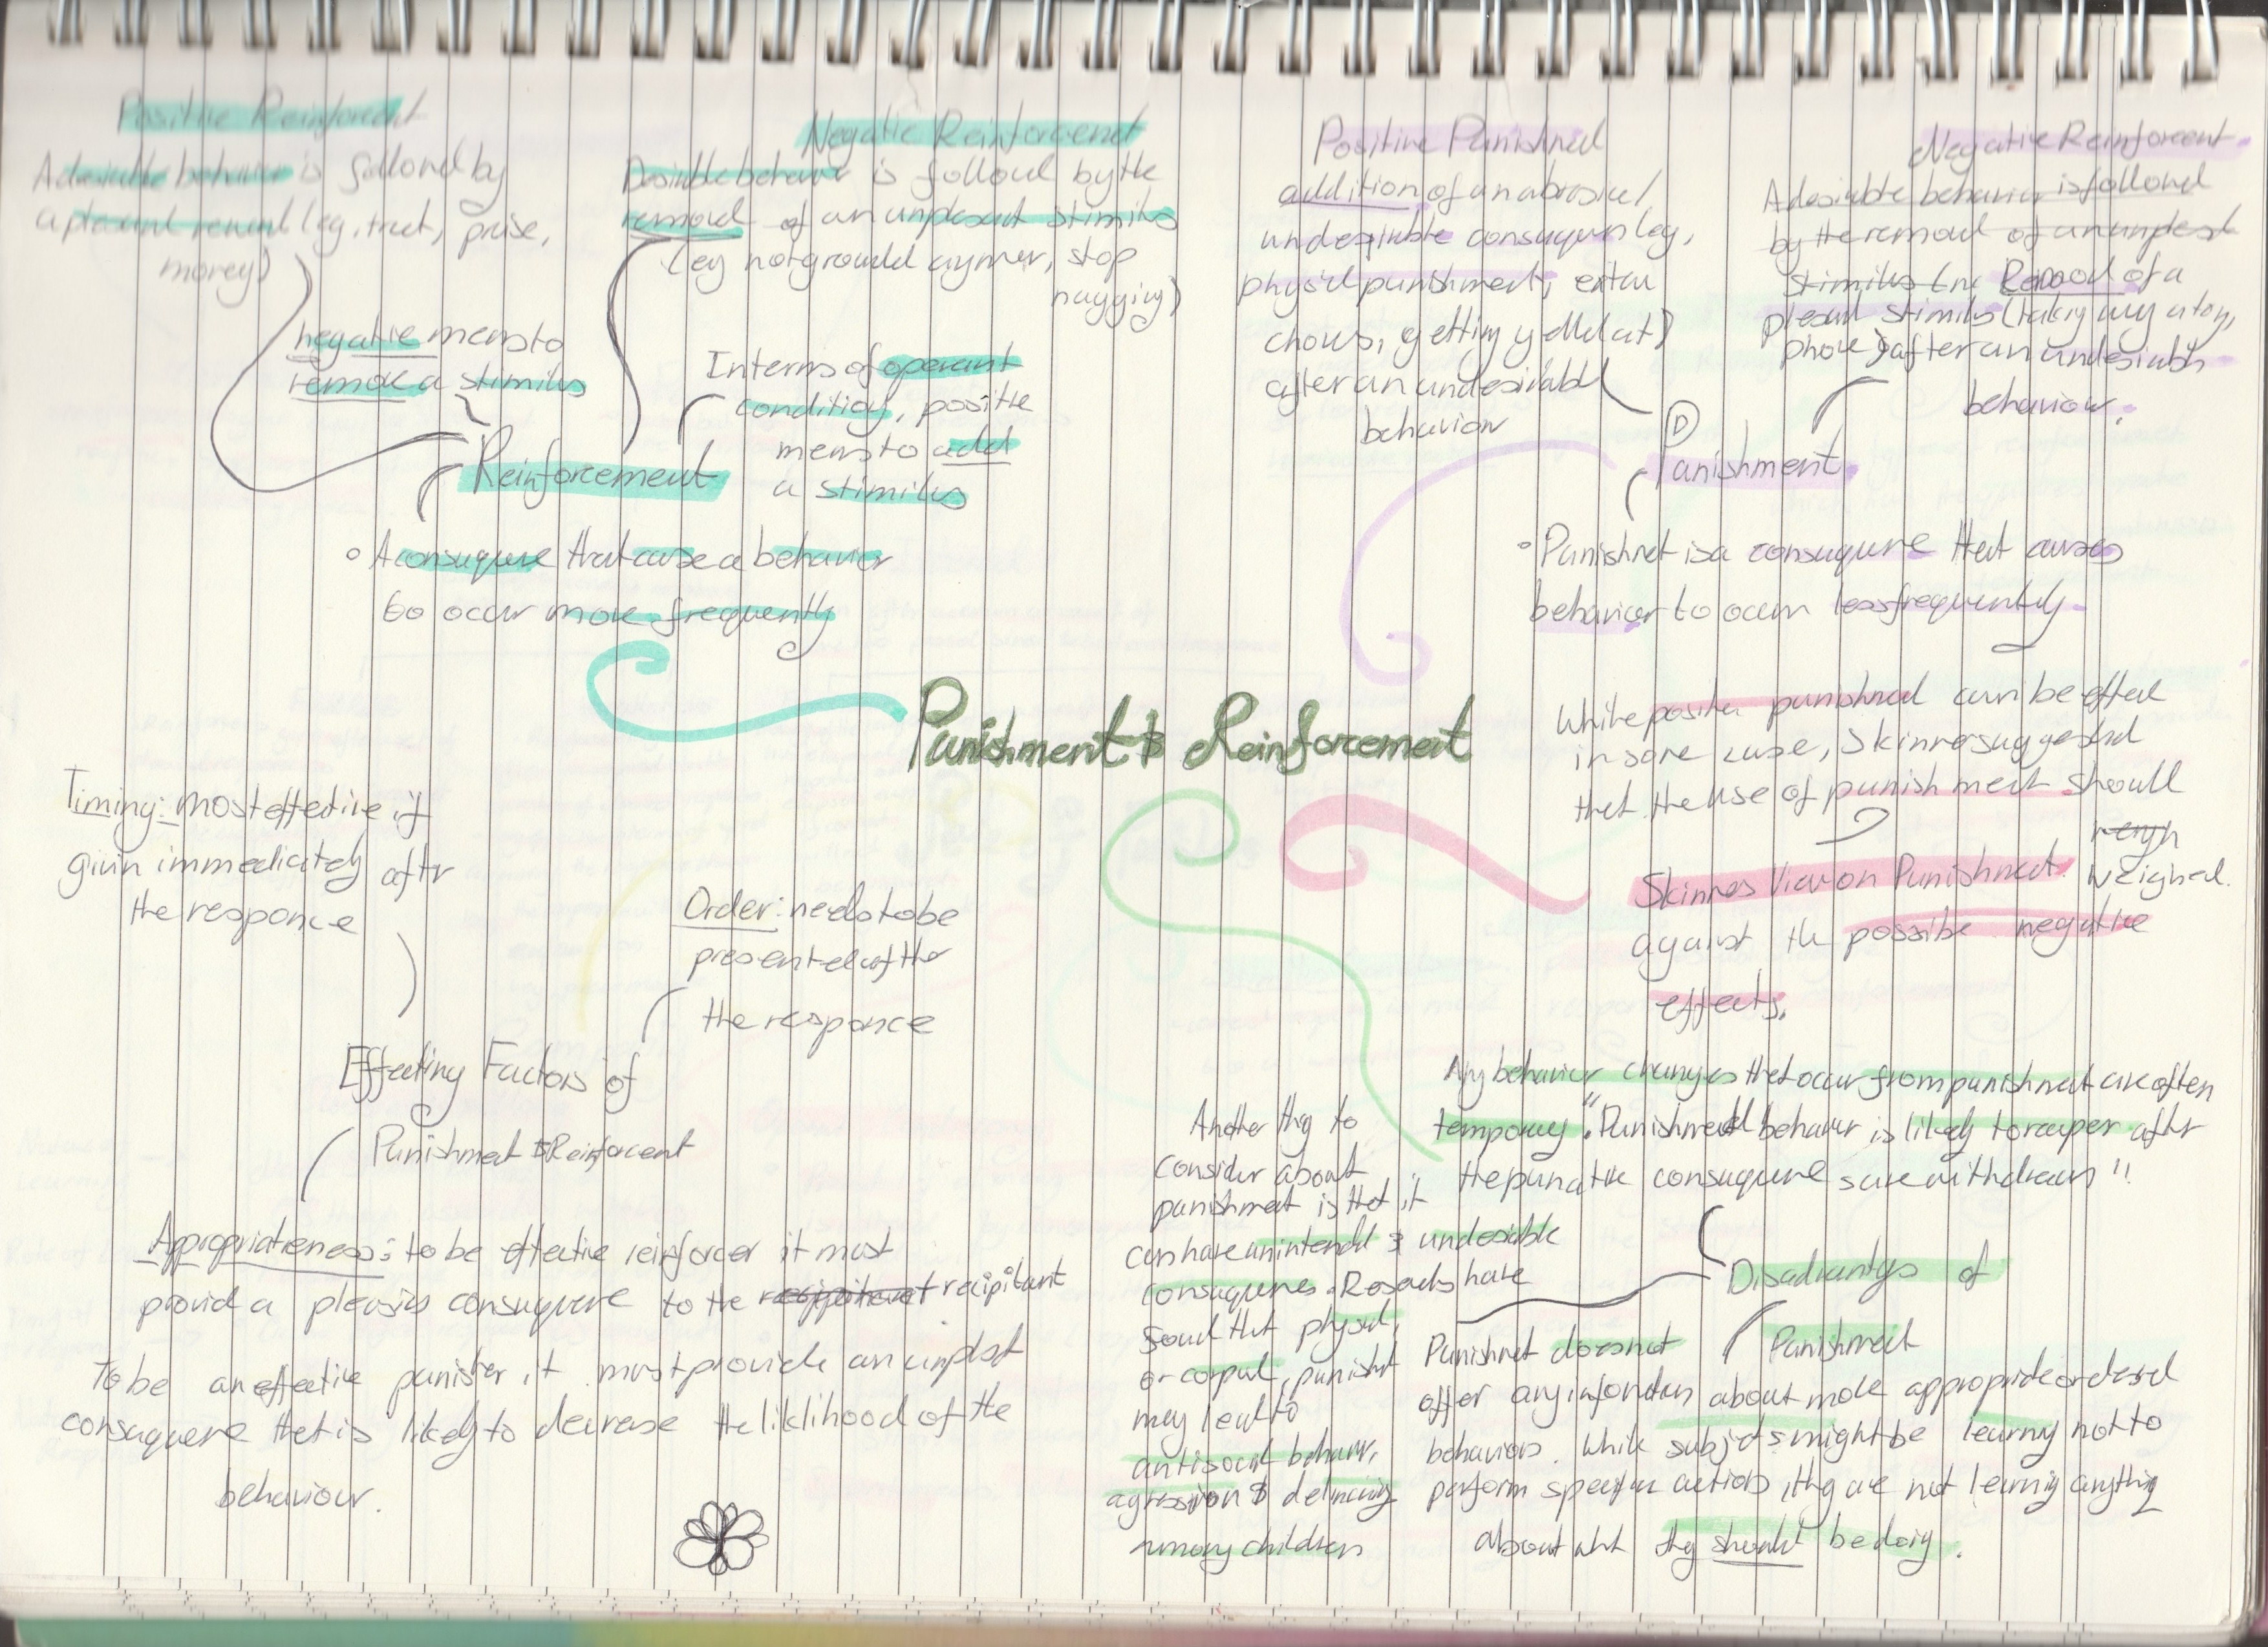 Positive Reinforcent
A desirable behavior is followd by
a pleasant reward (eg, treat, praise,
money)
negative means to
remove a stimilus
Negatie Reinforcenent
Desirable behavior is followd by the
removal of an unpleasant stimilus
(eg not grounded anymer, stop
nagging)
Interms of operant
condition, positie
means to add
a stimilus
Reinforcement
A consuquence that cause a behavior
to occur more frequently
Positive Punishned
addition of an abrasive/
undesirable consuquen (eg,
physical punishment, extra
chours, getting yelled at)
after an undesirable
behavior
Negative Reinforcent
A desirable behavior is followed
by the removal of an unpleast
stimilus Removal of a
plesant stimilus (taking away a toy,
phone) after an undesirable
behaviour.
P
Panishment
Punishnet is a consuquene that causes
behavior to occur less frequently
Punishment & Reinforcement
While positive punishned can be effect
in some case, Skinner suggested
that the use of punishment should
weigh
weighed.
Skinners View on Punishment.
against the possible negative
effects.
Timing: most effective if
givin immediately aftr
the responce
Order: needs to be
presented after
the responce
Effecting Factors of
Punishment & Reinforcent
Appropriateness: to be effective reinforcer it must
provid a pleasing consuquence to the recipitant
To be an effective punisher, it must provide an unplest
consuquence that is likely to decrease the liklihood of the
behaviour.
Any behavior changes that occur from punishment are often
temporary. "Punishmend behavior is likely to reaper after
the punative consuquences are withdrawn".
Another thing to
consider about
punishment is that it
can have unintended & undesirable
consequenes. Reseachs have
found that physical,
or corpal, punishment
may lead to
antisocial behavior,
agression & delincuincy
among children
Disadvantges of
Punishment
Punishnet does not
offer any infomation about more appropride or desired
behaviors. While subjects might be learning not to
perform specific actions, they are not learning anything
about what they should be doing.